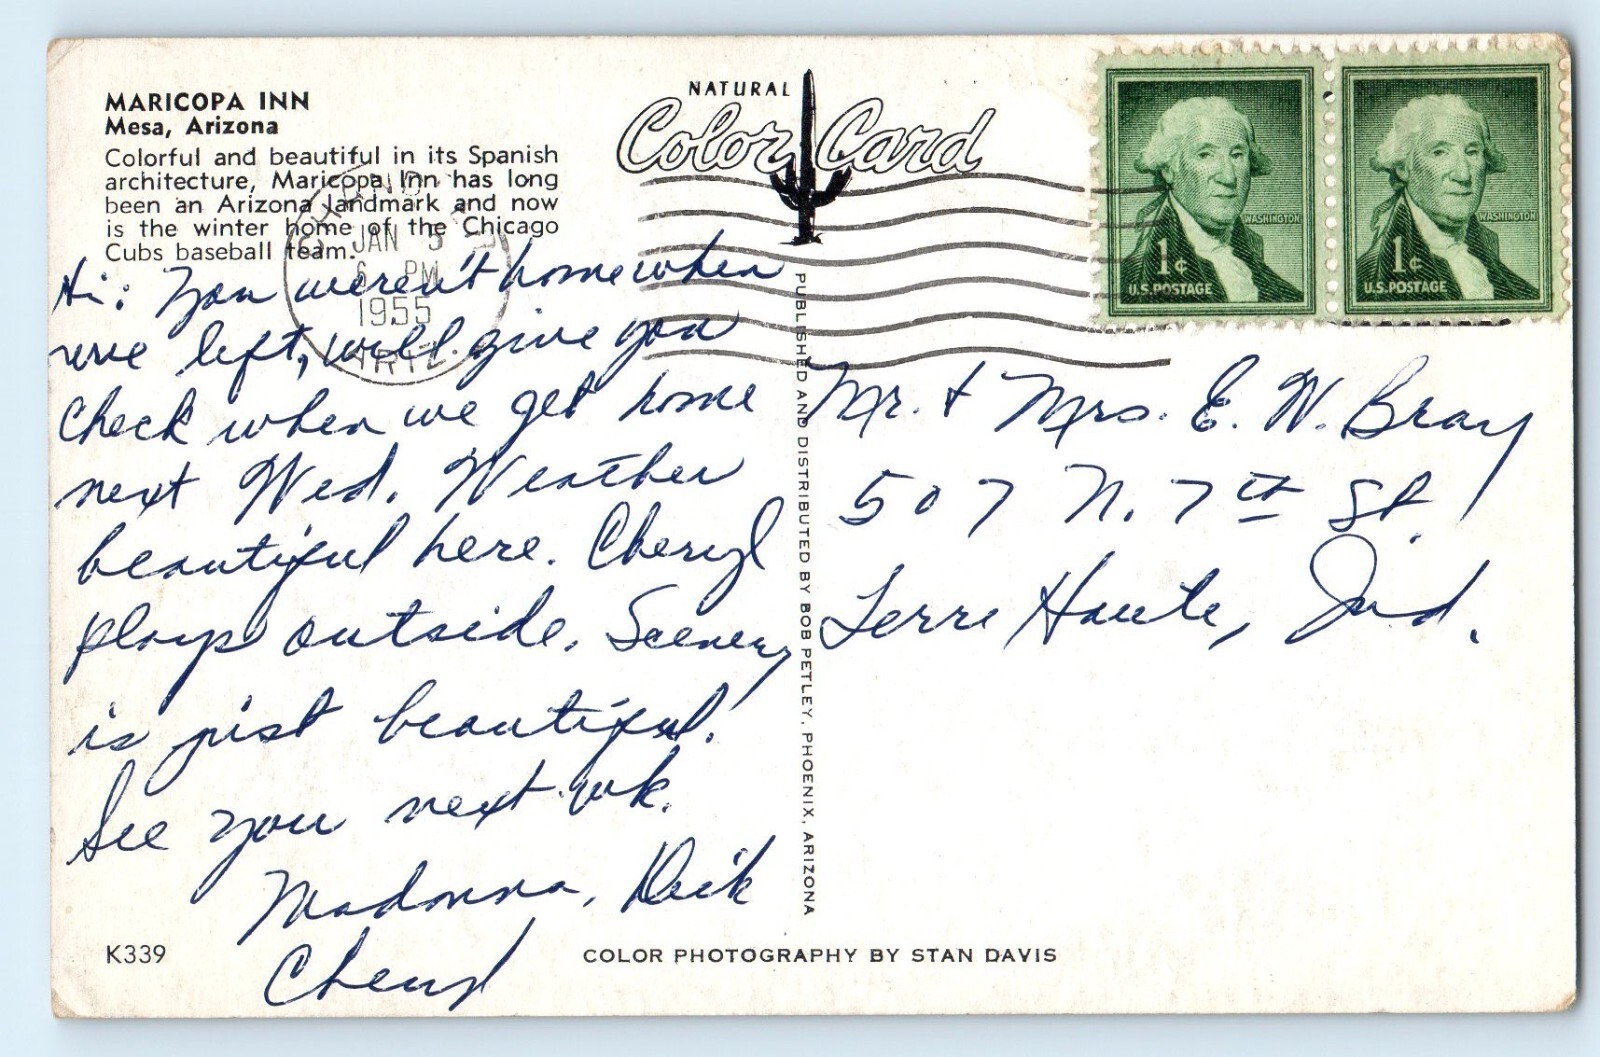 MARICOPA INN
Mesa, Arizona
Colorful and beautiful in its Spanish
architecture, Maricopa Inn has long
been an Arizona landmark and now
is the winter home of the Chicago
Cubs baseball team.
NATURAL
Color Card
WASHINGTON
1¢
U.S. POSTAGE
WASHINGTON
1¢
U.S. POSTAGE
JAN 5
6 PM
1955
ARIZ.
Hi: You weren't home when
we left, will give you
check when we get home
next Wed. Weather
beautiful here. Cheryl
plays outside. Scenery
is just beautiful!
See you next wk.
Madonna, Dick
Cheryl
PUBLISHED AND DISTRIBUTED BY BOB PETLEY, PHOENIX, ARIZONA
Mr. + Mrs. E. W. Bray
507 N. 7th St.
Terre Haute, Ind.
K339
COLOR PHOTOGRAPHY BY STAN DAVIS